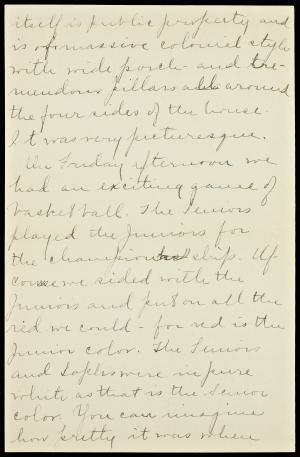 itself is public property and
is of massive colonial style
with wide porch - and tre-
mendous pillars all around
the four sides of the house.
It was very picturesque.
On Friday afternoon we
had an exciting game of
basket ball. The Seniors
played the Juniors for
the championship. Of
course we sided with the
Juniors and put on all the
red we could - for red is the
Junior color. The Seniors
and Sophs were in pure
white as that is the Senior
color. You can imagine
how pretty it was when